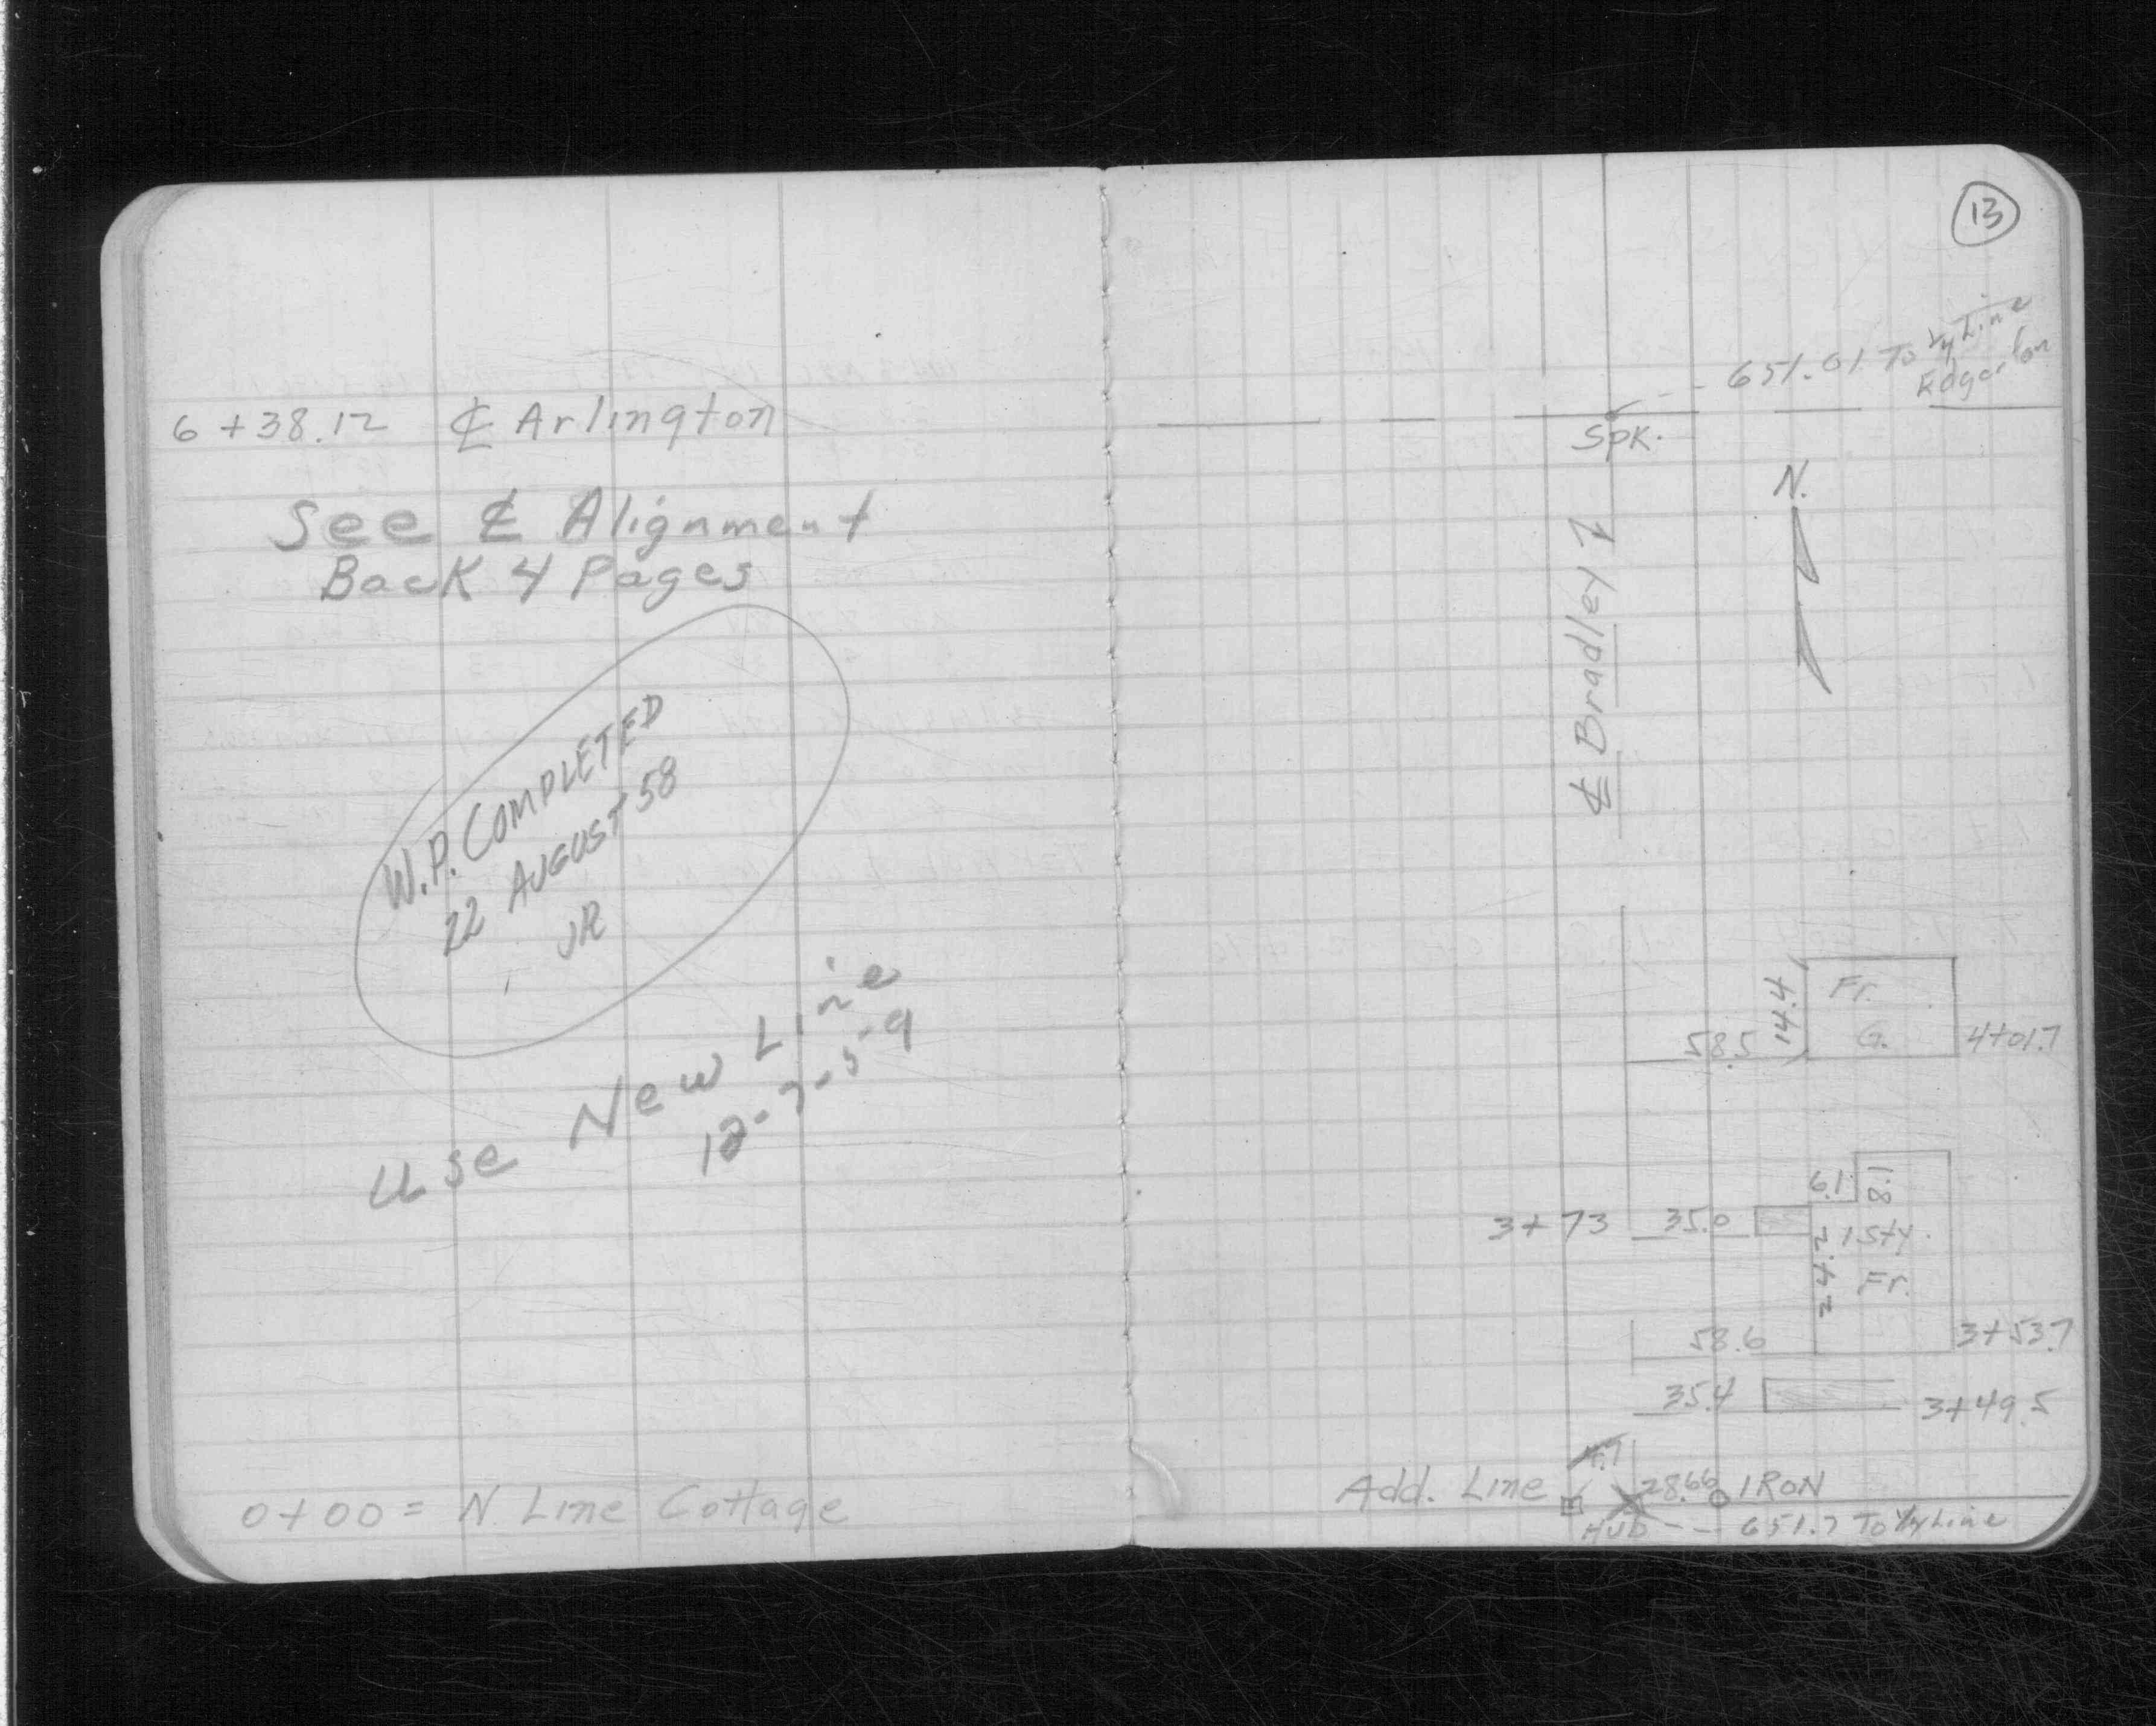 6 + 38.12 ℄ Arlington
See ℄ Alignment
Back 4 Pages
W.P. COMPLETED
22 AUGUST 58
JR
Use New Line
12-7-59
0+00 = N. Line Cottage
13
651.01 To Wly Line
Edgerton
Spk.
N.
℄ Bradley
14.4
Fr.
G.
58.5
4+01.7
6.1
8.1
3+73
35.0
1 Sty.
Fr.
24.2
58.6
3+53.7
35.4
3+49.5
Add. Line
28.66
IRON
Hub -- 651.7 To Wly Line